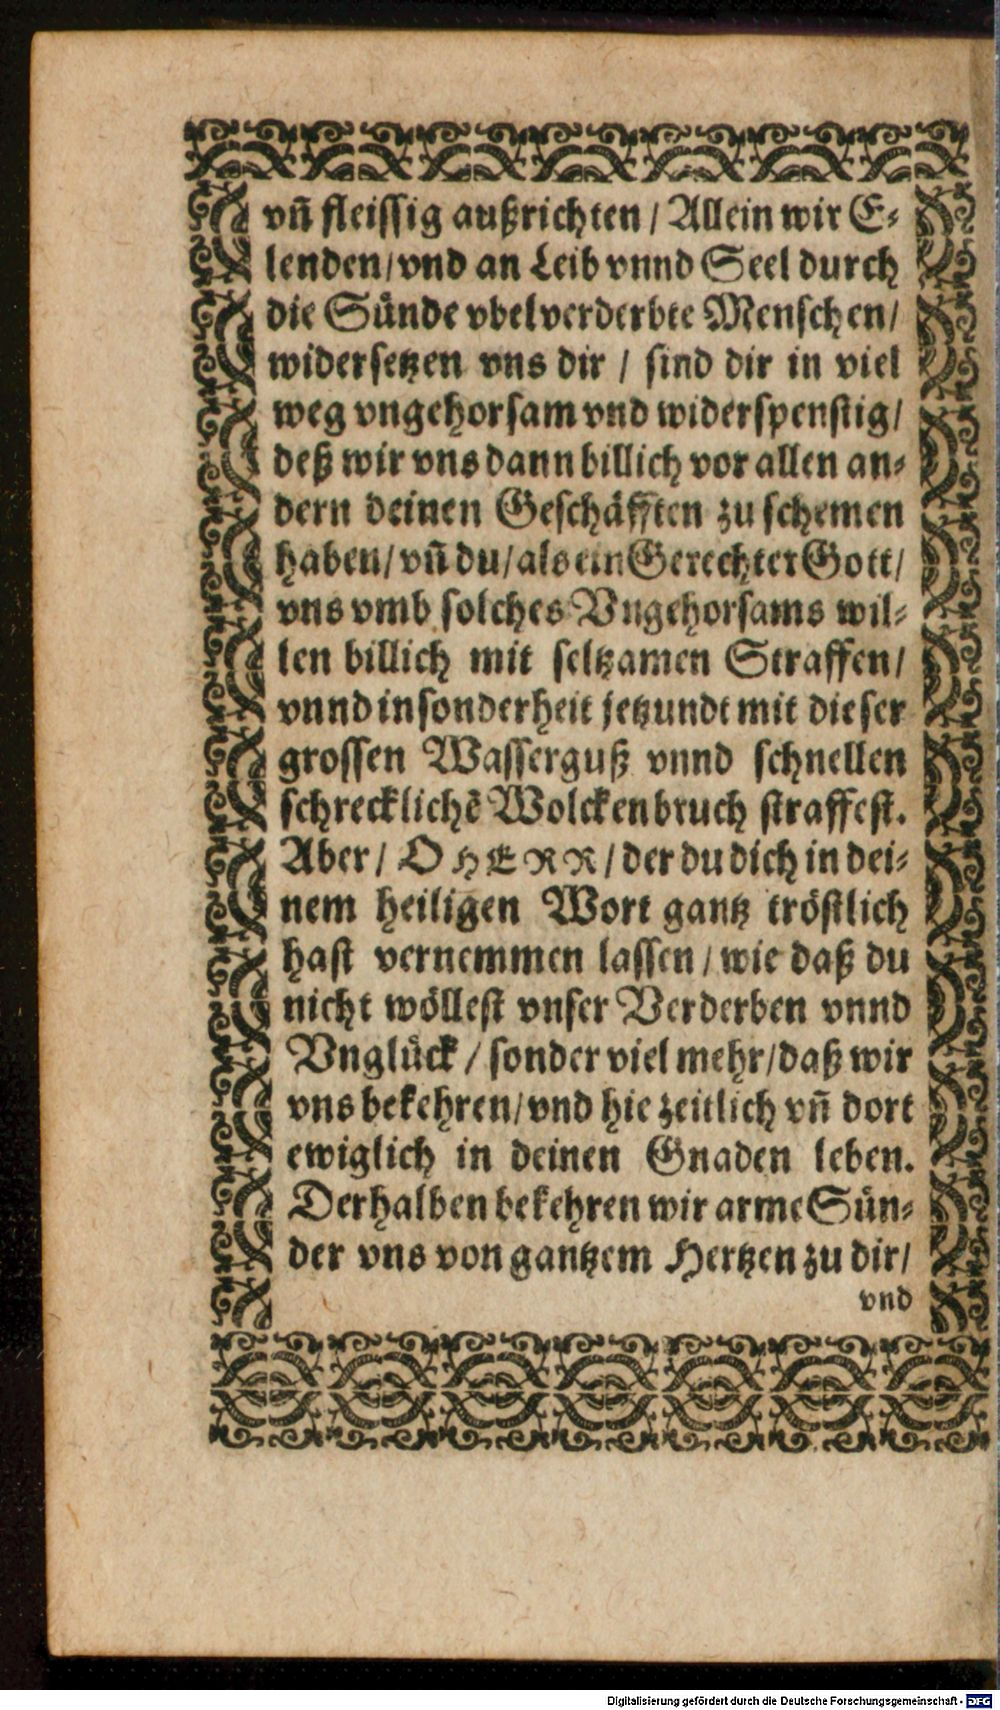 vñ fleissig außrichten / Allein wir E-
lenden / vnd an Leib vnnd Seel durch
die Sünde vbel verderbte Menschen /
widersetzen vns dir / sind dir in viel
weg vngehorsam vnd widerspenstig /
deß wir vns dann billich vor allen an-
dern deinen Geschäfften zu schemen
haben / vñ du / als ein Gerechter Gott /
vns vmb solches Vngehorsams wil-
len billich mit seltzamen Straffen /
vnnd insonderheit jetzundt mit dieser
grossen Wasserguß vnnd schnellen
schrecklichẽ Wolckenbruch straffest.
Aber / O HERR / der du dich in dei-
nem heiligen Wort gantz tröstlich
hast vernemmen lassen / wie daß du
nicht wöllest vnser Verderben vnnd
Vnglück / sonder viel mehr / daß wir
vns bekehren / vnd hie zeitlich vñ dort
ewiglich in deinen Gnaden leben.
Derhalben bekehren wir arme Sün-
der vns von gantzem Hertzen zu dir /
vnd
Digitalisierung gefördert durch die Deutsche Forschungsgemeinschaft - DFG